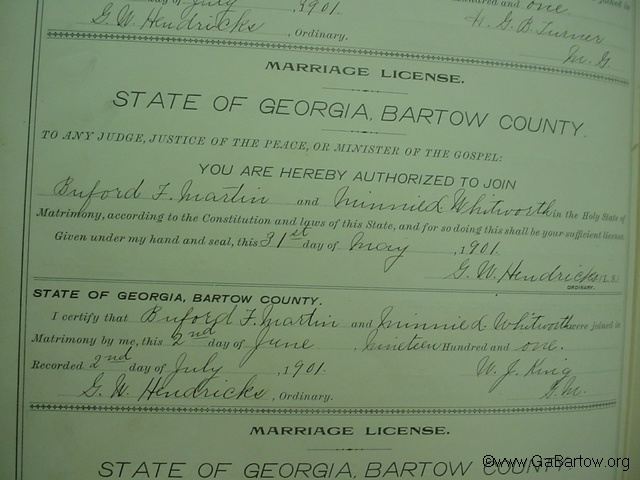 day of July , 1901.
hundred and one.
G. W. Hendricks , Ordinary.
W. G. B. Turner
M. G
MARRIAGE LICENSE.
STATE OF GEORGIA, BARTOW COUNTY.
TO ANY JUDGE, JUSTICE OF THE PEACE, OR MINISTER OF THE GOSPEL:
YOU ARE HEREBY AUTHORIZED TO JOIN
Buford F. Martin and Minnie L Whitworth in the Holy State of
Matrimony, according to the Constitution and laws of this State, and for so doing this shall be your sufficient license.
Given under my hand and seal, this 31st day of May , 1901.
G. W. Hendricks (L. S.)
ORDINARY.
STATE OF GEORGIA, BARTOW COUNTY.
I certify that Buford F. Martin and Minnie L. Whitworth were joined in
Matrimony by me, this 2nd day of June , nineteen Hundred and one.
Recorded 2nd day of July , 1901. W. J. King
G. W. Hendricks , Ordinary. G. M.
MARRIAGE LICENSE.
STATE OF GEORGIA, BARTOW COUNTY.
©www.GaBartow.org